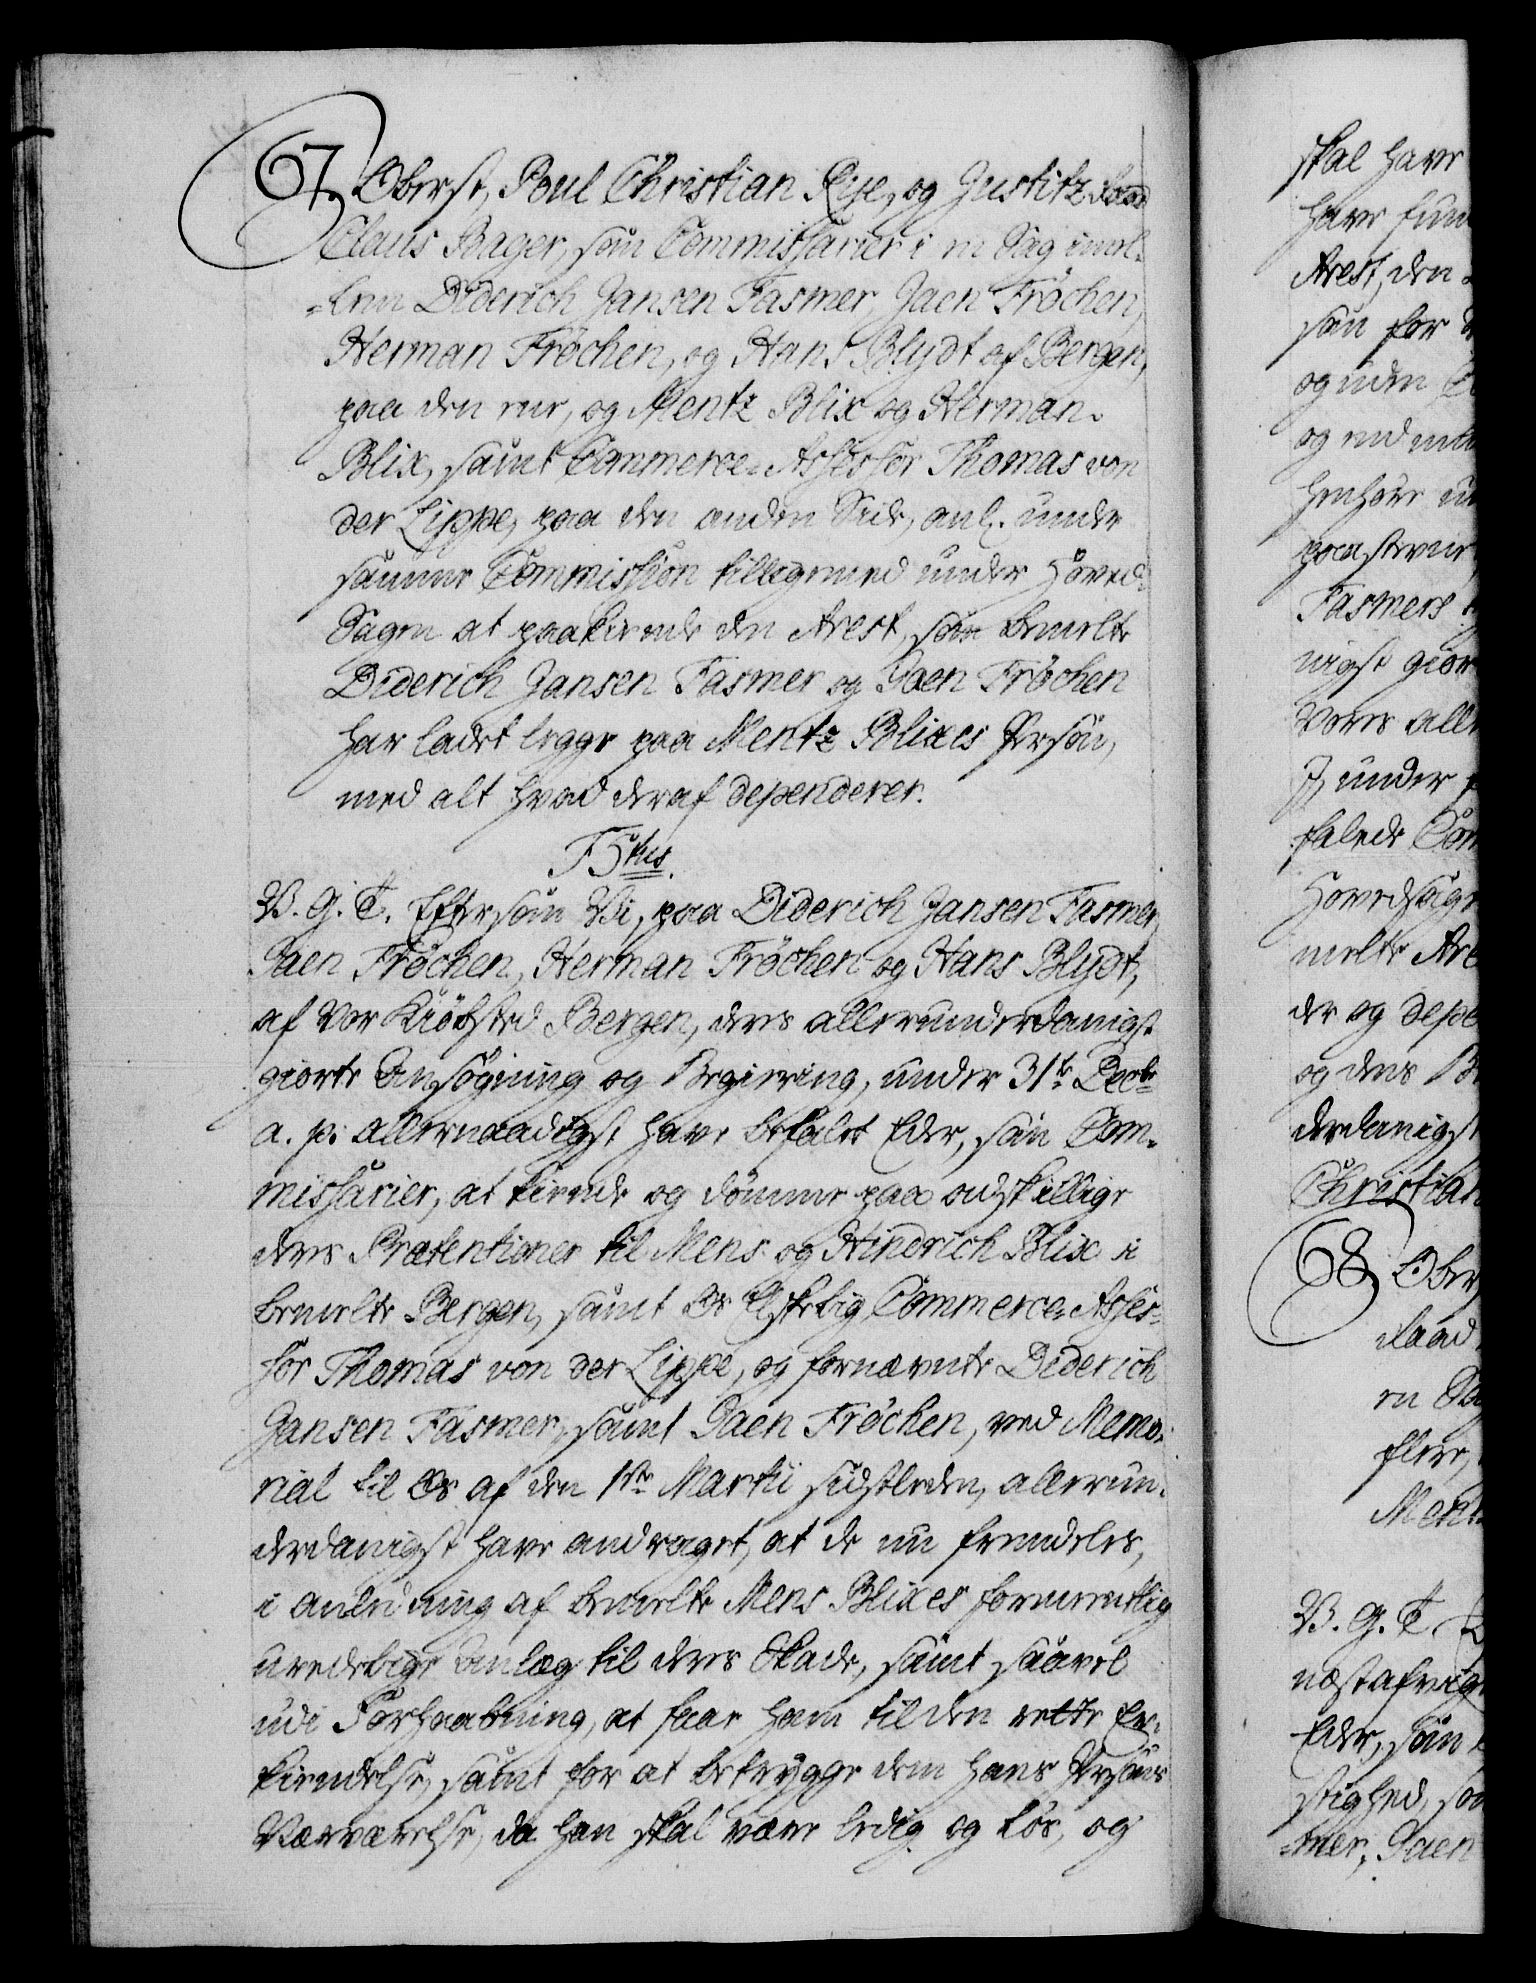 67. Oberst, Poul Christian Rye, og Justitz Raad
Claus Bager, som Commissarier i en Sag imel-
-lem Diderich Jansen Fasmer, Jaen Fröchen,
Herman Fröchen, og Hans Blydt af Bergen,
paa den ene, og Mentz Blix og Herman
Blix, samt Commerce-Assessor Thomas von
der Lippe, paa den anden Side, anl. under
samme Commission tillige med under Hoved-
Sagen at paakiende den Arest, som bemelte
Diderich Jansen Fasmer og Jaen Fröchen
har ladet legge paa Mentz Blixes Person,
med alt hvad deraf dependerer.
F5tus.
V. G. T. Eftersom Vi, paa Diderich Jansen Fasmer,
Jaen Fröchen, Herman Fröchen og Hans Blydt,
af Vor Kiöbsted Bergen, deres allerunderdanigst
giorte Ansögning og Begiering, under 31te Decbr
a. p. allernaadigst have befalet Eder, som Com-
missarier, at kiende og dömme paa adskillige
deres Prætentioner til Mens og Hindrich Blix i
bemelte Bergen, samt Os Elskelig Commerce-Asses-
sor Thomas von der Lippe, og fornævnte Diderich
Jansen Fasmer, samt Jaen Fröchen, ved Memo-
rial til Os af den 1ste Martii sidstleden, allerun-
derdanigst have andraget, at de nu fremdeles,
i anledning af bemelte Mens Blixes formeentlig
uredelige Anlæg til deres Skade, samt saavel
udi Forhaabning, at faae ham til den rette Er-
kiendelse, samt for at betrygge dem hans Persons
Nærværelse, da han skal være ledig og lös, og
skal have
have
Arest, den
som for
og uden
og med
henhøre
Fasmers
nigst giør
Vores aller
J, under
falede Com
Hovedsage
melte Are
der og depe
og dens
derdanigst
Christian
68 Ober
Raad
en Sag
flere,
Ment
V. G. T.
næstafvigt
Eder, som
stighed, som
-mer, Jaen